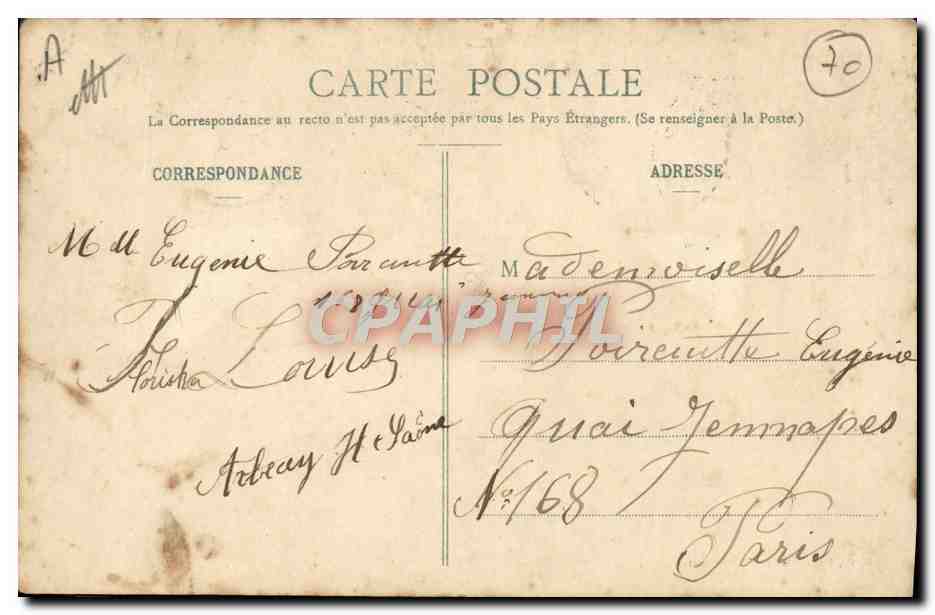 A
70
CARTE POSTALE
La Correspondance au recto n'est pas acceptée par tous les Pays Étrangers. (Se renseigner à la Poste.)
CORRESPONDANCE
ADRESSE
M dll Eugenie
168
Louise
Arbecey H Saône
Mademoiselle
Poircuitte Eugénie
Quai Jemmapes
No 168
Paris
CPAPHIL